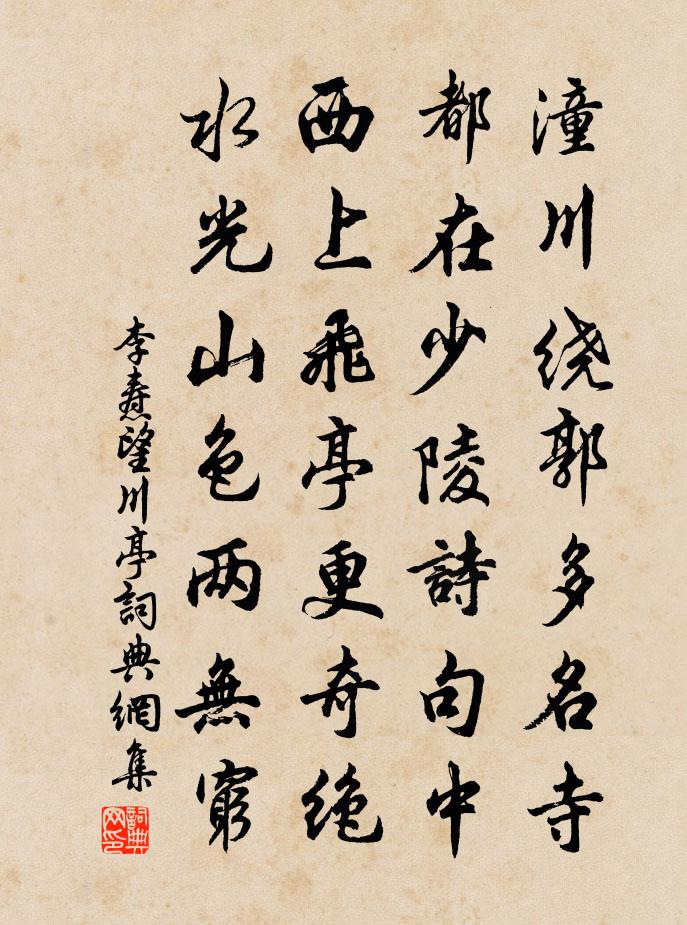 潼川绕郭多名寺
都在少陵詩句中
西上飛亭更奇绝
水光山色两無窮
李焘望川亭詞典網集
詞典网印